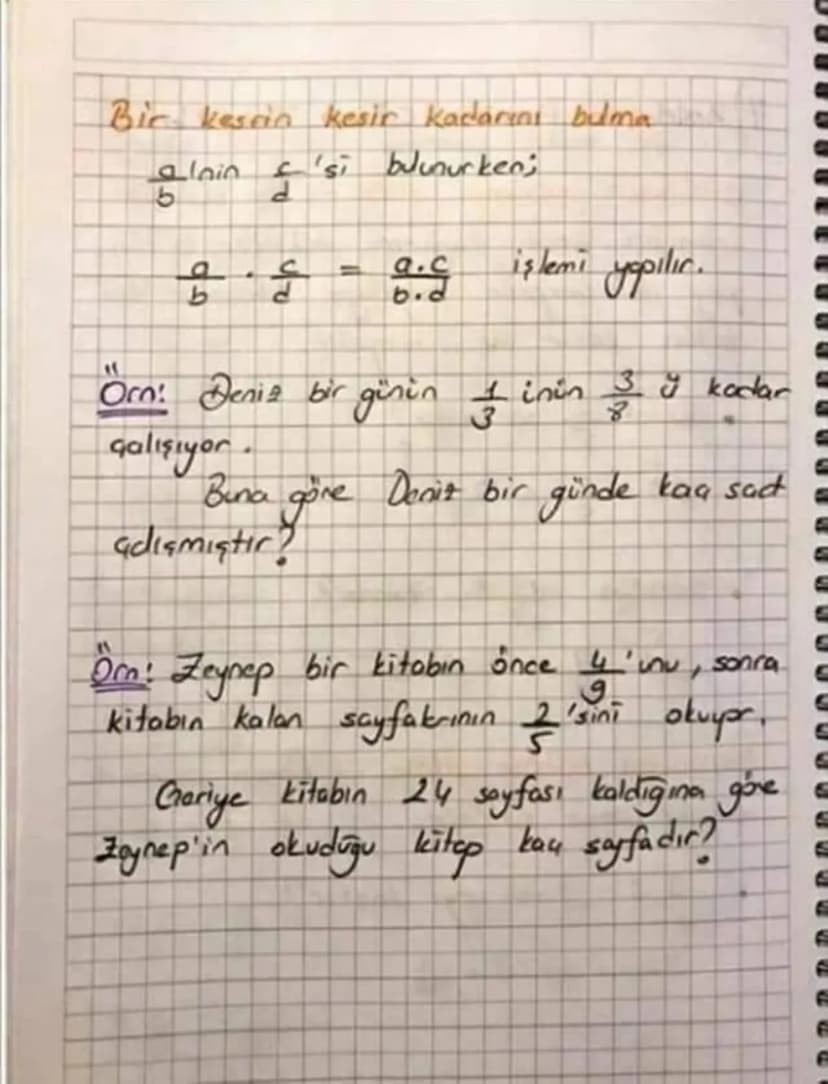 Bir kesrin kesir kadarını bulma
a/b 'nin c/d 'si bulunurken;
a/b . c/d = a.c/b.d işlemi yapılır.
Örn: Deniz bir günün 1/3 inin 3/8 ü kadar
çalışıyor.
Buna göre Deniz bir günde kaç saat
çalışmıştır?
Örn: Zeynep bir kitabın önce 4/9 'unu, sonra
kitabın kalan sayfalarının 2/5 'sini okuyor.
Geriye kitabın 24 sayfası kaldığına göre
Zeynep'in okuduğu kitap kaç sayfadır?